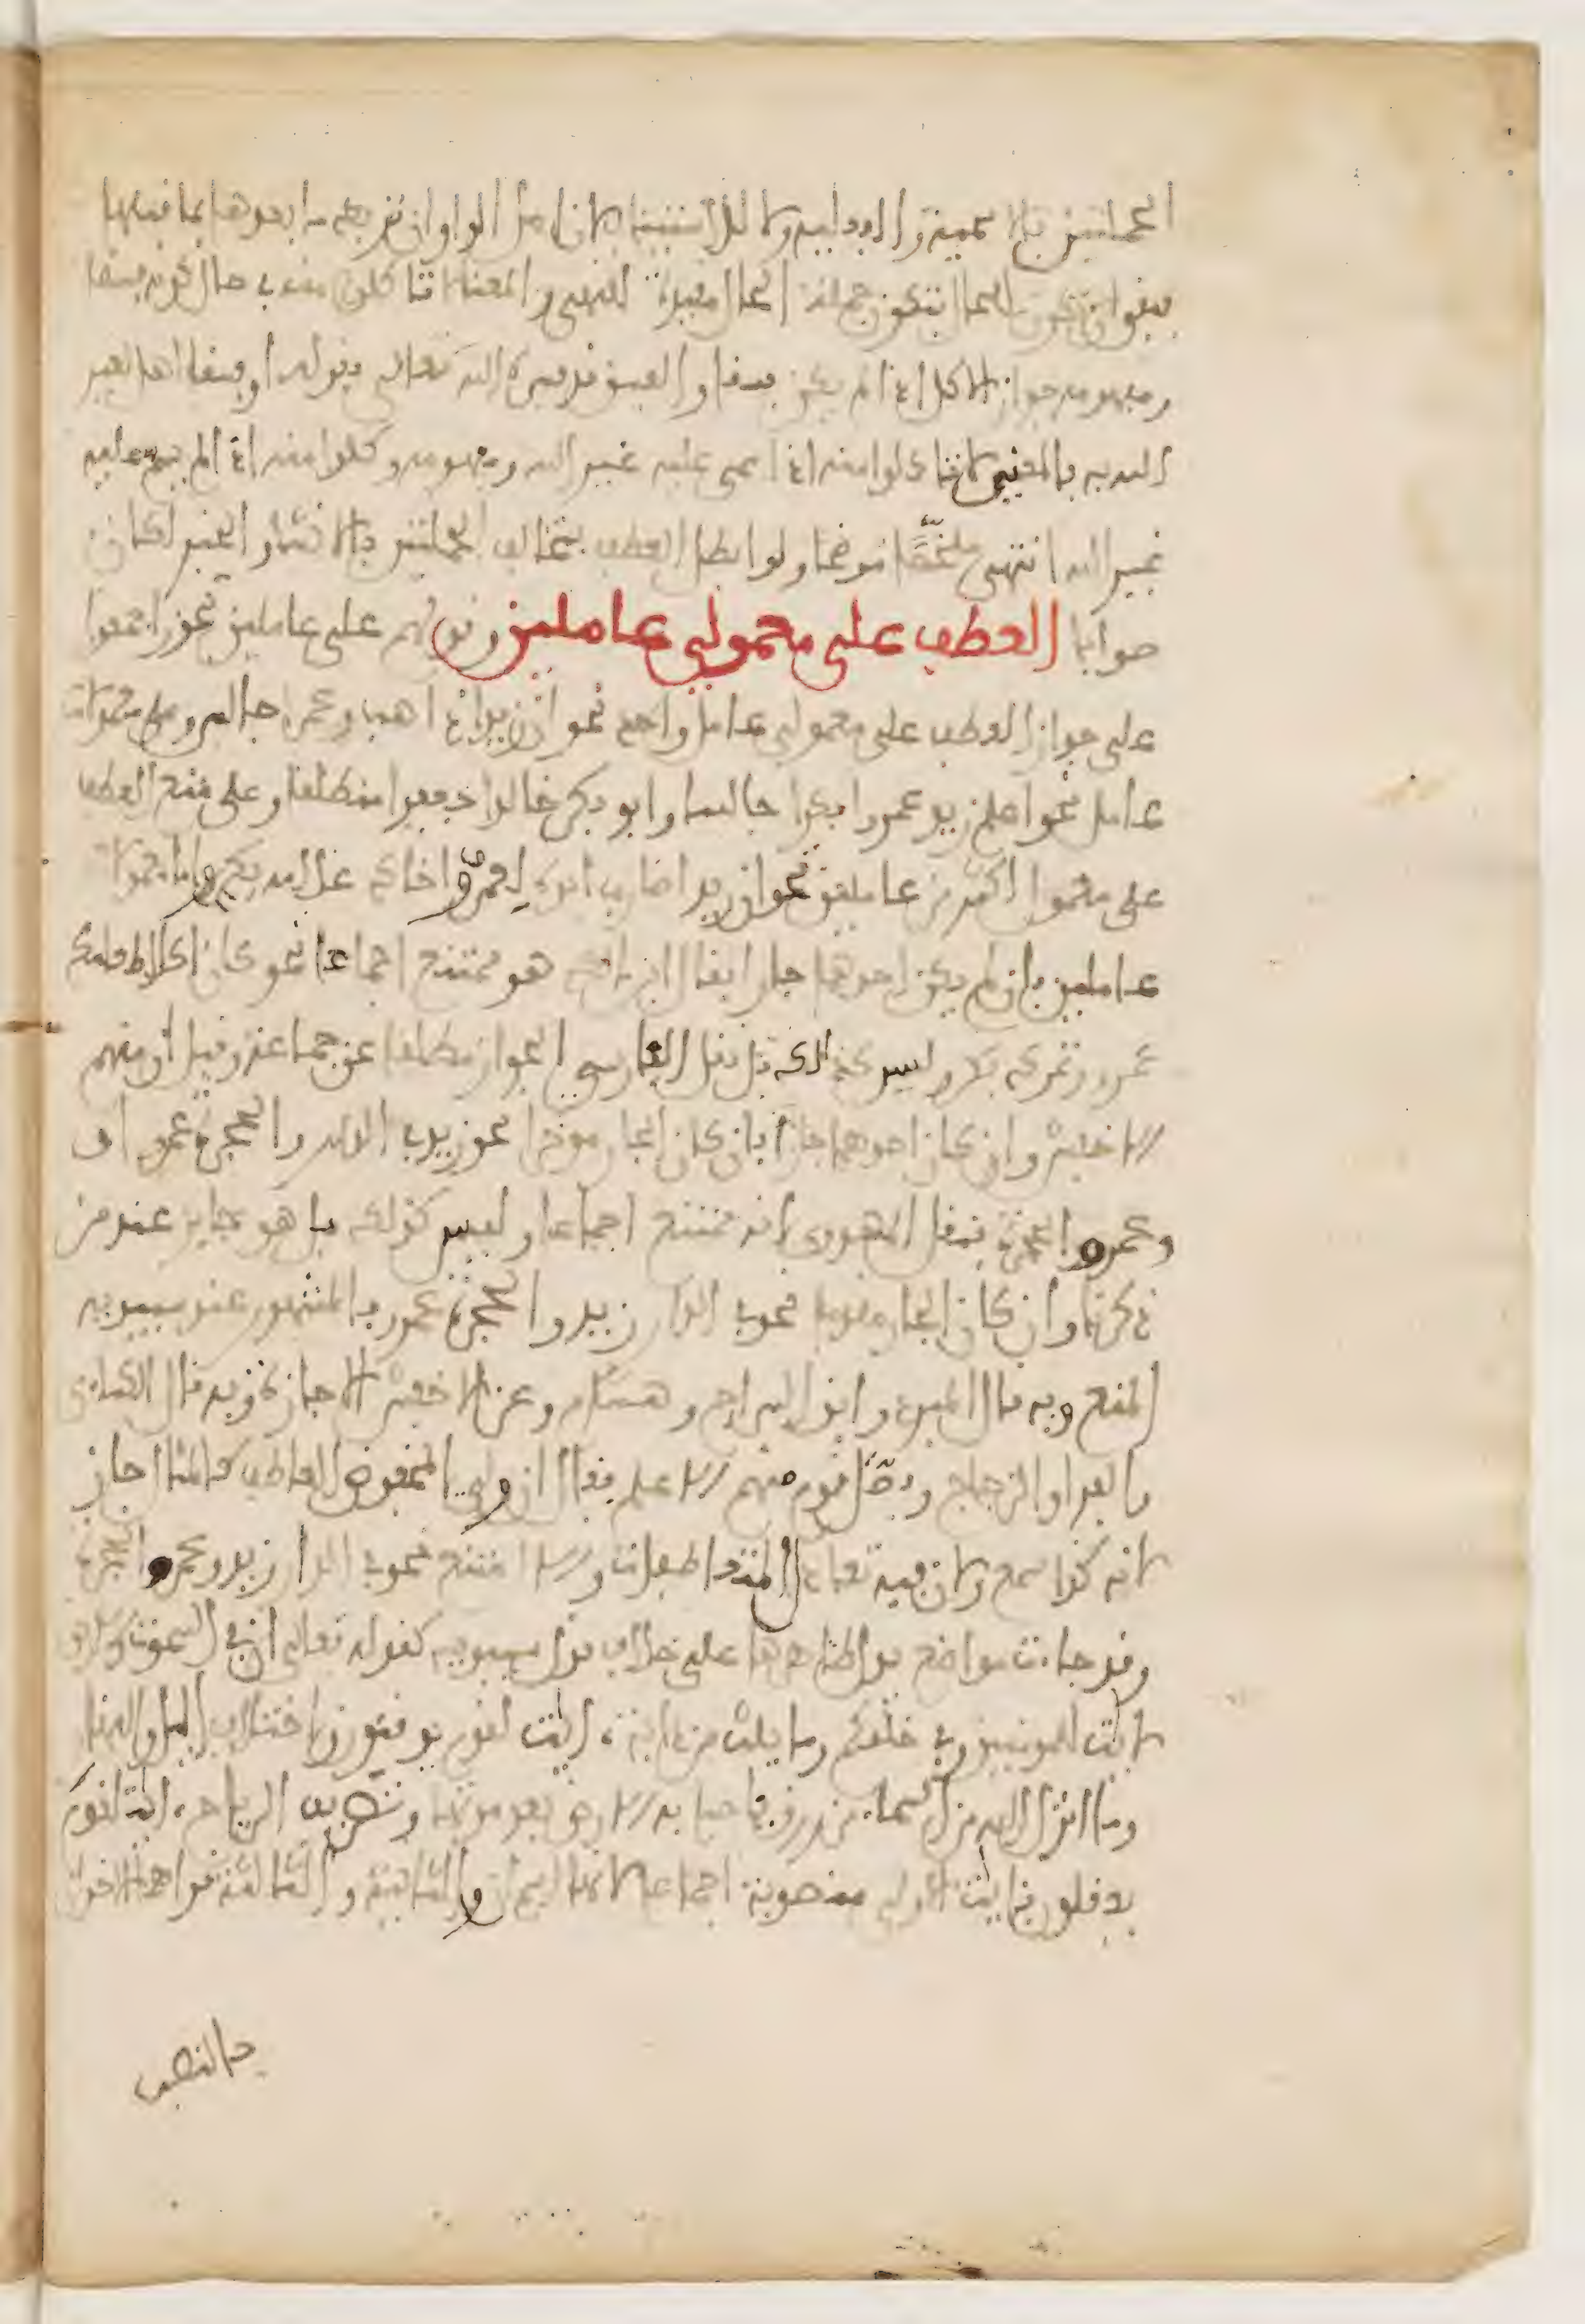 الجملتين بالاسمية والفعلية ولا للاستئناف لان اصل الواو ان تربط ما بعدها بما قبلها
فبقي ان تكون للحال فتكون جملة الحال مقيدة للنهي والمعنى لا تاكلوا منه في حال كونه فسقا
ومفهومه جواز الاكل اذا لم يكن فسقا والفسق قد فسره الله تعالى بقوله او فسقا اهل لغير
الله به فالمعنى لا تاكلوا منه اذا سمي عليه غير الله ومفهومه وكلوا منه اذا لم يسم عليه
غير الله انتهى ملخصا موضحا ولو ابطل العطف بتخالف الجملتين بالانشاء والخبر لكان
صوابا العطف على معمولي عاملين وقولهم على عاملين تجوز اجمعوا
على جواز العطف على معمولي عامل واحد نحو ان زيدا ذاهب وعمرا جالس وعلى معمولات
عامل نحو اعلم زيد عمرا بكرا جالسا وابو بكر خالدا سعيدا منطلقا وعلى منع العطف
على معمول اكثر من عاملين نحو ان زيدا ضارب ابوه لعمرو واخاك غلامه بكر واما معمولا
عاملين فان لم يكن احدهما جارا فقال ابن مالك هو ممتنع اجماعا نحو كان اكلا طعامك
عمرو وتمرك بكر وليس كذلك بل نقل الفارسي الجواز مطلقا عن جماعة وقيل ان منهم
الاخفش وان كان احدهما جارا فان كان الجار موخرا نحو زيد في الدار والحجرة عمرو او
وعمرو الحجرة فنقل المهدوي انه ممتنع اجماعا وليس كذلك بل هو جايز عند من
ذكرنا وان كان الجار مقدما نحو في الدار زيد والحجرة عمرو فالمشهور عن سيبويه
المنع وبه قال المبرد وابن السراج وهشام وعن الاخفش الاجازة وبه قال الكسائي
والفراء والزجاج وفصل قوم منهم الاعلم فقال ان ولي المخفوض العاطف كالمثال جاز
لانه كذا سمع ولان فيه تعادل المتعاطفات والا امتنع نحو في الدار زيد وعمرو الحجرة
وقد جاءت مواضع يدل ظاهرها على خلاف قول سيبويه كقوله تعالى ان في السموات والارض
لايت للمومنين وفي خلقكم وما يبث من دابة ايت لقوم يوقنون واختلاف اليل والنهار
وما انزل الله من السماء من رزق فاحيا به الارض بعد موتها وتصريف الرياح ايت لقوم
يعقلون فايت الاولى منصوبة اجماعا لانها اسم ان والثانية والثالثة قراهما الاخوان
بالنصب